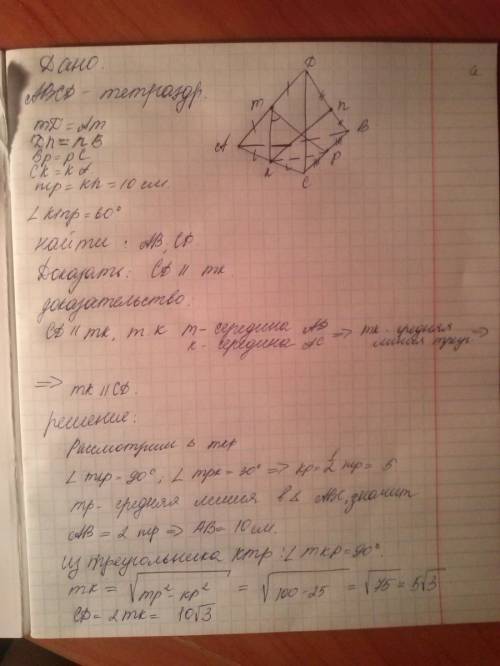 Дано.
ABCD - тетраэдр.
mD = Am
Dn = nB
Bp = pC
Ck = kA
mp = kn = 10 см.
∠ kmp = 60°
найти: AB, CD
Доказать: CD || mk
доказательство:
CD || mk, т к m - середина AD
k - середина AC => mk - средняя линия треуг =>
=> mk || CD.
решение:
Рассмотрим Δ mkp
∠ mkp = 90°, ∠ mpk = 30° => kp = 1/2 mp = 5
mp - средняя линия в Δ ABC, значит
AB = 2 mp => AB = 10 см.
из треугольника kmp: ∠ mkp = 90°.
mk = √(mp² - kp²) = √(100 - 25) = √75 = 5√3
CD = 2mk = 10√3
D
m
n
A
B
k
p
C